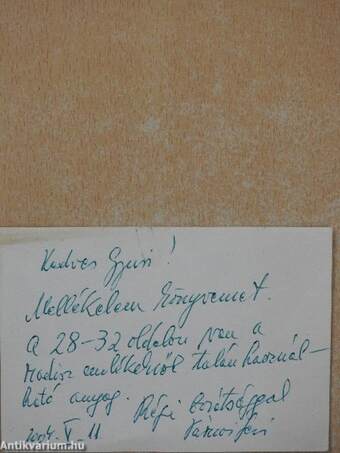 Kedves Gyuri!
Mellékelem könyvemet.
a 28-32 oldalon van a
Madisz emlékeiről talán használ-
ható anyag.
Régi barátsággal
2004. V. 11.
Antikvarium.hu